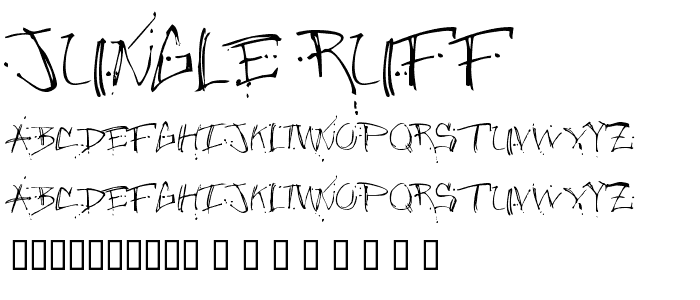 JUNGLE RUFF
ABCDEFGHIJKLMNOPQRSTUVWXYZ
ABCDEFGHIJKLMNOPQRSTUVWXYZ